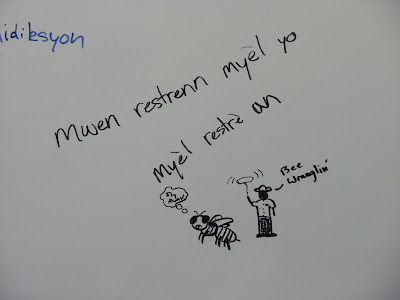 idiksyon
Mwen restrenn myèl yo
myèl restrè an
Bee
Wranglin'